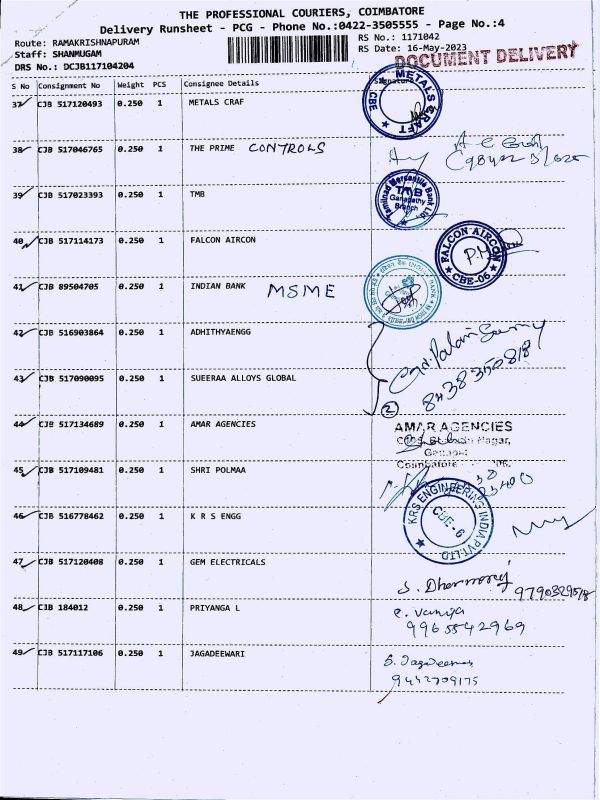 THE PROFESSIONAL COURIERS, COIMBATORE
Delivery Runsheet - PCG - Phone No.:0422-3505555 - Page No.:4
Route: RAMAKRISHNAPURAM
RS No.: 1171042
Staff: SHANMUGAM
RS Date: 16-May-2023
DOCUMENT DELIVERY
DRS No.: DCJB117104204
S No Consignment No Weight PCS Consignee Details Signature
37 CJB 517120493 0.250 1 METALS CRAF
METALS CRAFT CBE
38 CJB 517046765 0.250 1 THE PRIME CONTROLS
39 CJB 517023393 0.250 1 TMB
Tamilnad Mercantile Bank Ltd
TMB
Ganapathy
Branch
40 CJB 517114173 0.250 1 FALCON AIRCON
FALCON AIRCON
CBE-06
41 CJB 89504705 0.250 1 INDIAN BANK MSME
42 CJB 516903864 0.250 1 ADHITHYAENGG
43 CJB 517090095 0.250 1 SUEERAA ALLOYS GLOBAL
8438350818
2
44 CJB 517134689 0.250 1 AMAR AGENCIES
AMAR AGENCIES
Nagar,
Coimbatore
45 CJB 517109481 0.250 1 SHRI POLMAA
46 CJB 516778462 0.250 1 K R S ENGG
KRS ENGINEERING INDIA PVT.LTD
CBE - 6
47 CJB 517120408 0.250 1 GEM ELECTRICALS
S. Dharmaraj
48 CJB 184012 0.250 1 PRIYANGA L
9965542969
49 CJB 517117106 0.250 1 JAGADEEWARI
9442709175